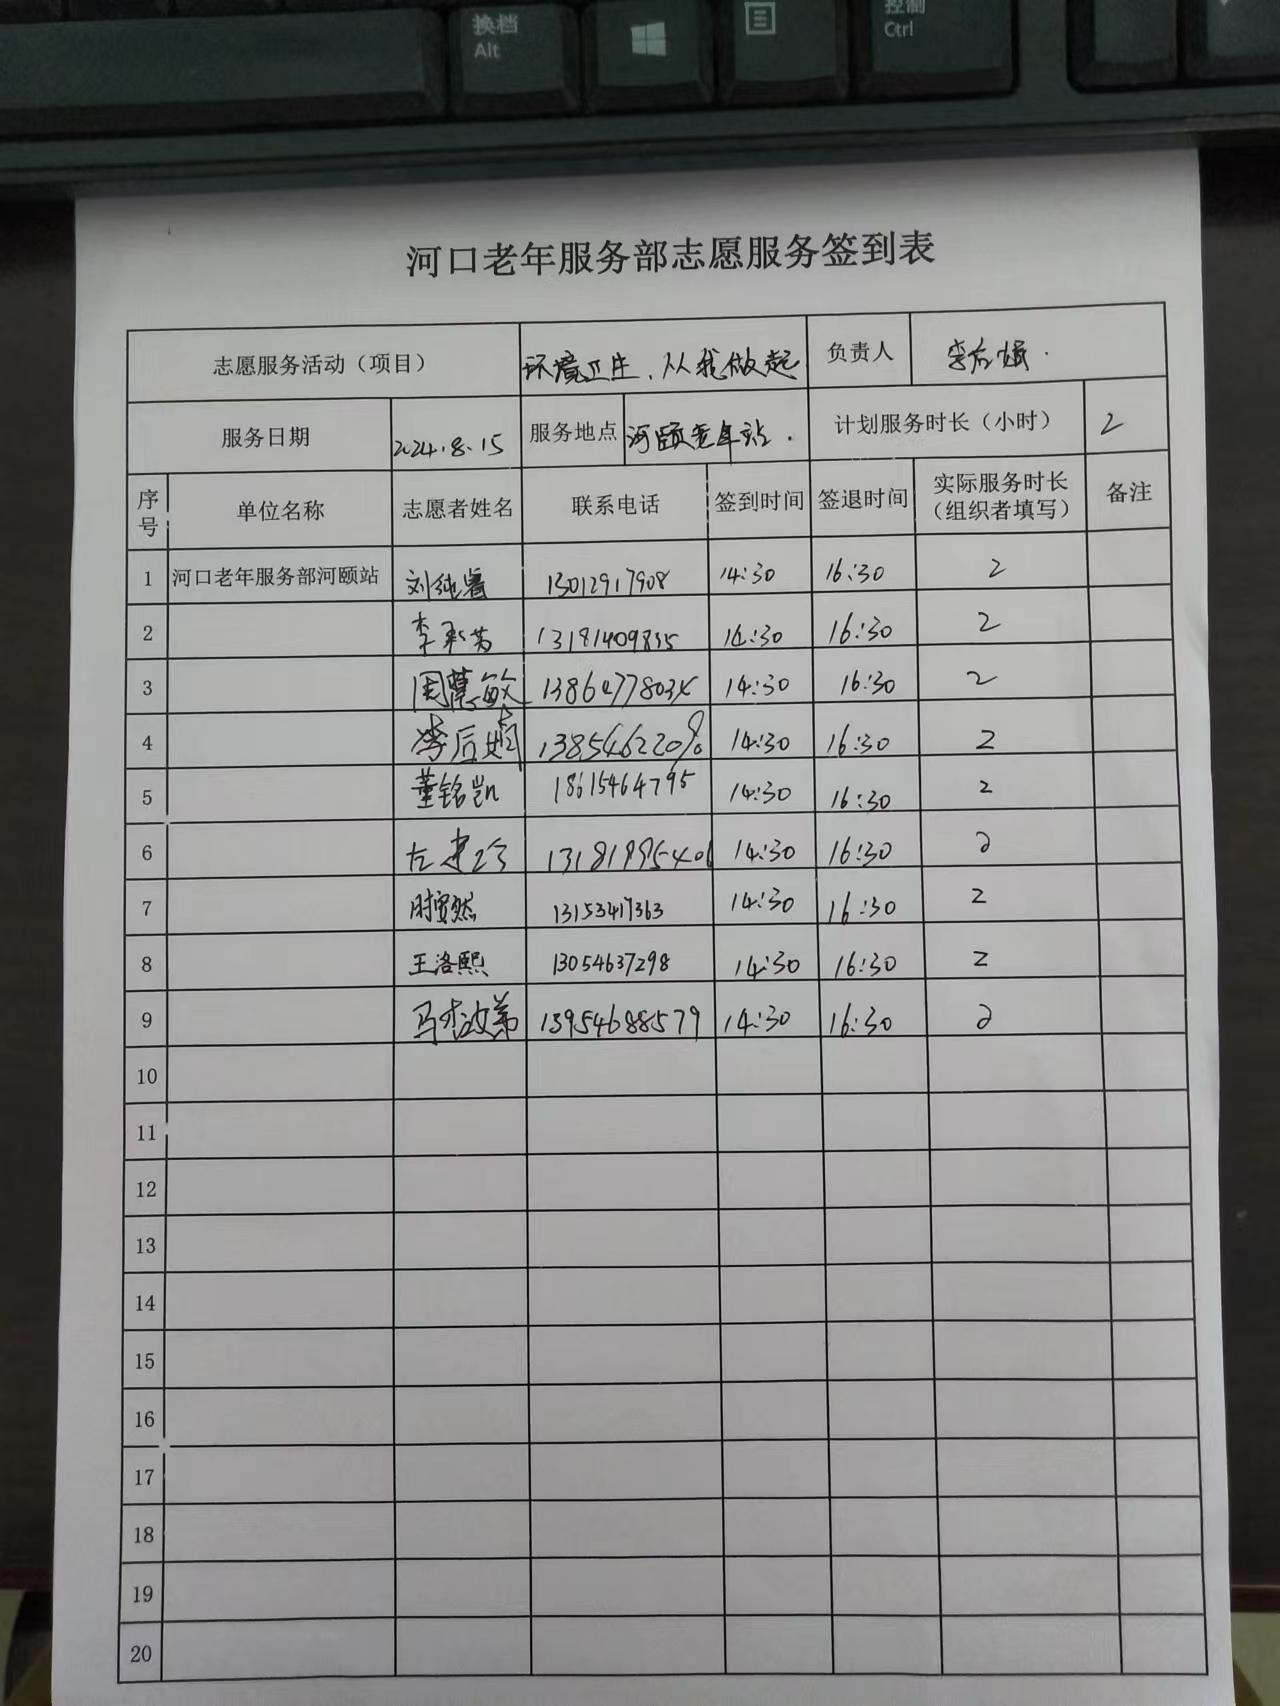 换档
Alt
控制
Ctrl
河口老年服务部志愿服务签到表
志愿服务活动（项目） 环境卫生、从我做起 负责人
服务日期 2024.8.15 服务地点 河颐老年站. 计划服务时长（小时） 2
序号 单位名称 志愿者姓名 联系电话 签到时间 签退时间 实际服务时长（组织者填写） 备注
1 河口老年服务部河颐站 刘纯睿 13012917908 14:30 16:30 2
2 13181409835 14:30 16:30 2
3 周慧敏 14:30 16:30 2
4 李后娟 14:30 16:30 2
5 董铭凯 18615464795 14:30 16:30 2
6 14:30 16:30 2
7 13153417363 14:30 16:30 2
8 王洛熙 13054637298 14:30 16:30 2
9 13954688579 14:30 16:30 2
10
11
12
13
14
15
16
17
18
19
20